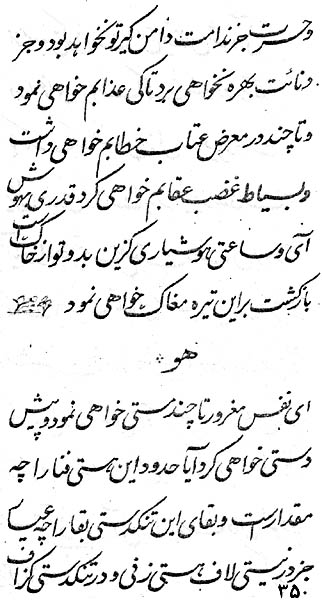 وحسرت جز ندامت دامن گیر تو نخواهد بود و جز
دنائت بهره نخواهی برد تا کی عذابم خواهی نمود
و تا چند در معرض عتاب خطابم خواهی داشت
و بسیاط غضب عقابم خواهی کرد قدری بهوش
آی و ساعتی هوشیاری گزین بد و تو از خاکست
بازگشت بر این تیره مغاک خواهی نمود
هو
ای نفس مغرور تا چند مستی خواهی نمود و پیش
دستی خواهی کرد آیا حدود این هستی فنا را چه
مقدار است و بقای این تنگدستی بقا را چه عیار
جز در نیستی لاف هستی زنی و در تنگدستی گزاف
۳۵۰